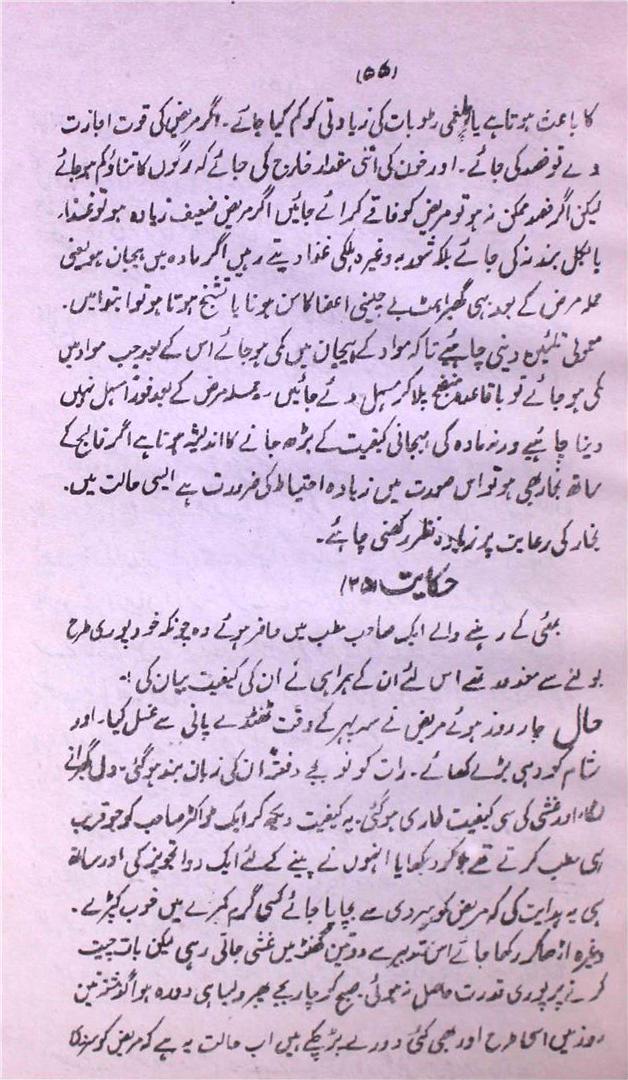 (۵۵)
کا باعث ہوتا ہے یا بلغمی رطوبات کی زیادتی کو کم کیا جائے۔ اگر مریض کی قوت اجازت
دے تو فصد کی جائے۔ اور خون کی اتنی مقدار خارج کی جائے کہ رگوں کا تناؤ کم ہو جائے
لیکن اگر فصد ممکن نہ ہو تو مریض کو فاقے کرائے جائیں اگر مریض ضعیف زیادہ ہو تو غذا
بالکل بند نہ کی جائے بلکہ شوربہ وغیرہ ہلکی غذا دیتے رہیں اگر مادہ میں ہیجان ہو یعنی
حملہ مرض کے بعد ہی گھبراہٹ بے چینی اعضا کا سن ہونا یا تشنج ہوتا ہو تو ابتوا میں۔
معمولی تلئین دینی چاہئیے تاکہ مواد کے ہیجان میں کمی ہو جائے اس کے بعد جب مواد میں
کمی ہو جائے تو باقاعدہ منضج پلا کر مسہل دئے جائیں۔ حملہ مرض کے بعد فوراً مسہل نہیں
دینا چاہئیے ورنہ مادہ کی ہیجانی کیفیت کے بڑھ جانے کا اندیشہ ہوتا ہے اگر فالج کے
ساتھ بخار بھی ہو تو اس صورت میں زیادہ احتیاط کی ضرورت ہے ایسی حالت میں۔
بخار کی رعایت پر زیادہ نظر رکھنی چاہئے۔
حکایت (۲۵)
بمبئی کے رہنے والے ایک صاحب مطب میں حاضر ہوئے وہ چونکہ خود پوری طرح
بولنے سے معذور تھے اس لئے ان کے ہمراہی نے ان کی کیفیت بیان کی :۔
حال چار روز ہوئے مریض نے سہ پہر کے وقت ٹھنڈے پانی سے غسل کیا۔ اور
شام کو دہی بڑے کھائے۔ رات کو نو بجے دفعۃً ان کی زبان بند ہو گئی۔ دل گھبرانے
لگا اور غشی کی سی کیفیت طاری ہو گئی۔ یہ کیفیت دیکھ کر ایک ڈاکٹر صاحب کو جو قریب
ہی مطب کرتے تھے بلا کر دکھایا انہوں نے پینے کے لئے ایک دوا تجویز کی اور ساتھ
ہی یہ ہدایت کی کہ مریض کو سردی سے بچایا جائے کسی گرم کمرے میں خوب کپڑے۔
وغیرہ اڑھا کر رکھا جائے اس تدبیر سے دو تین گھنٹہ میں غشی جاتی رہی لیکن بات چیت
کرنے پر پوری قدرت حاصل نہ ہوئی۔ صبح کو چار بجے پھر ویسا ہی دورہ ہوا گذشتہ تین
روز میں اسی طرح اور بھی کئی دورے پڑ چکے ہیں اب حالت یہ ہے کہ مریض کو